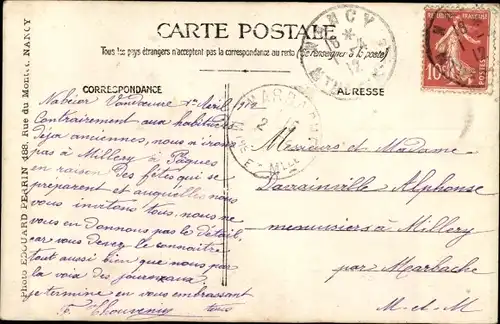 CARTE POSTALE
Tous les pays étrangers n'acceptent pas la correspondance au recto (Se renseigner à la poste)
CORRESPONDANCE
ADRESSE
NANCY
10
Avril 1912
Contrairement aux habitudes
déjà anciennes, nous n'irons
pas à Millery à Pâques
en raison des fêtes qui se
preparent et auxquelles nous
vous invitons tous, nous ne
vous en donnons pas le détail,
car vous devez le connaître
tout aussi bien que nous par
la voix des journaux.
je termine en vous embrassant
tous
Messieurs et Madame
Darrainville Alphonse
menuisiers à Millery
par Marbache
M-et-M
Photo EDOUARD PEARIN 468, Rue du Montet, NANCY